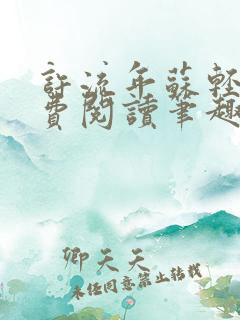 許流年蘇輕
費閱讀筆趣
卿天天
未經同意禁止轉載